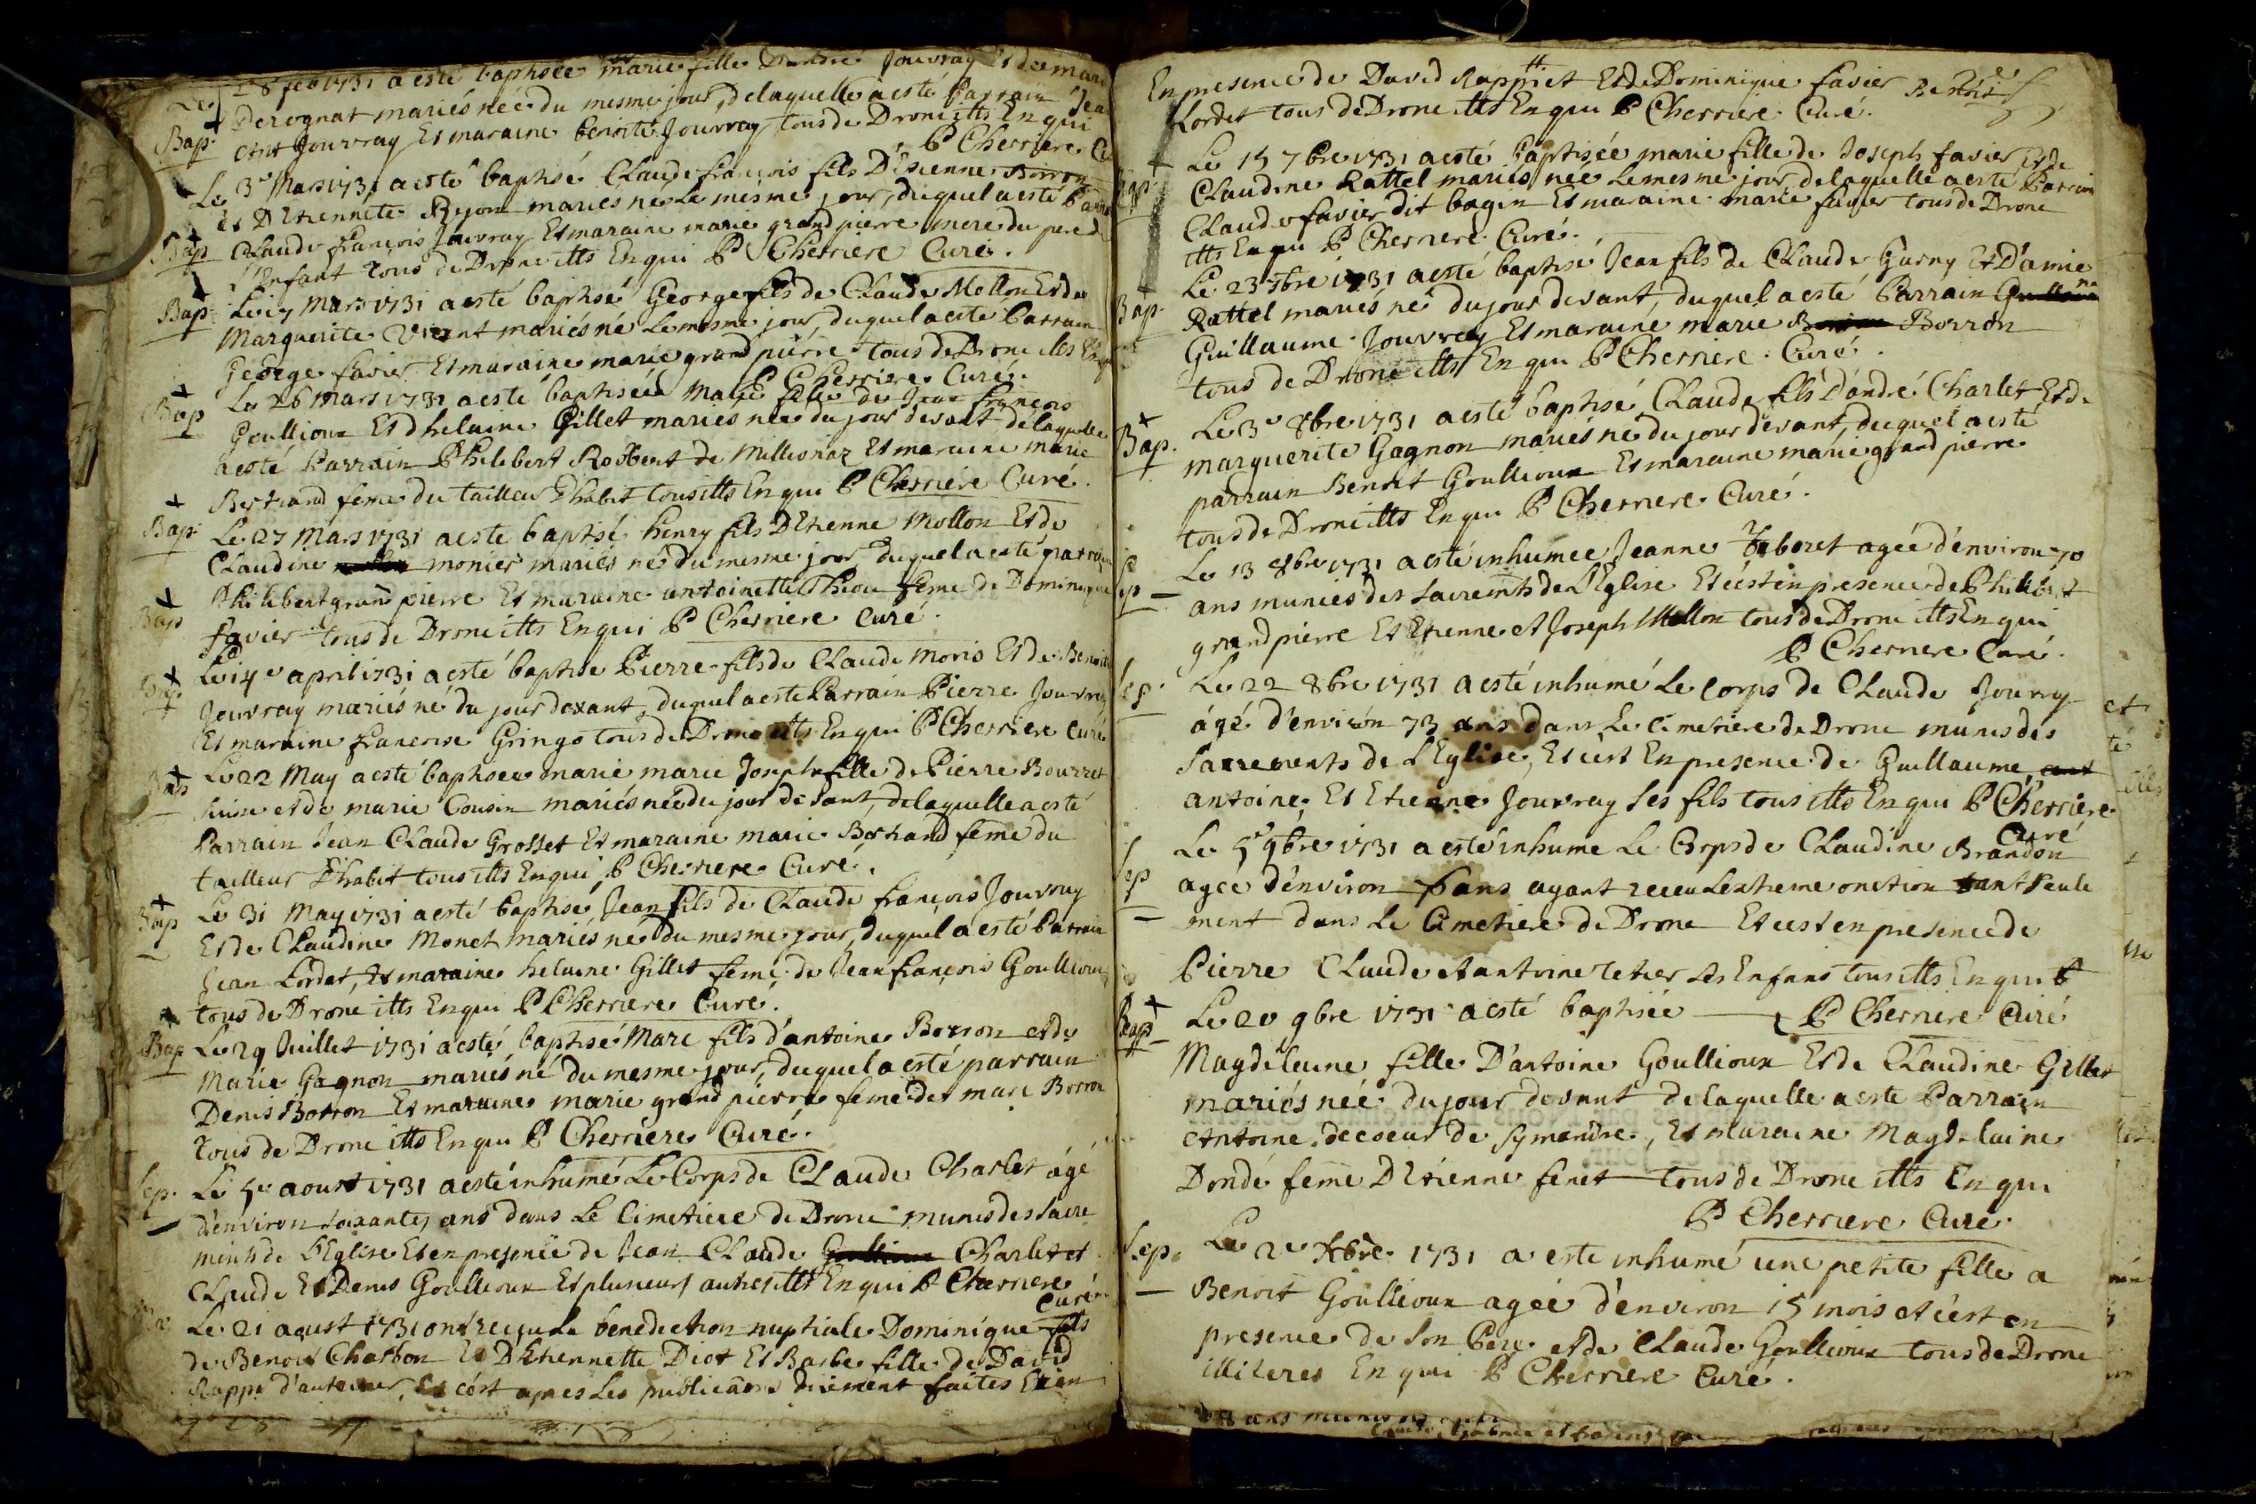 Le 28 feb 1731 a esté baptisée marie fille Jouvray Et de marie
Bap. Derognat mariés née du mesme jour, de laquelle a esté Parrain
Jouvray Et maraine benoite Jouvray tous de Drom itts En qui
P Cherriere
Le 3e Mars 1731 a esté baptisé Claude françois fils D'Etienne Borron
et D'Etiennete mariés né Le mesme jour, duquel a esté
Bap Claude françois Jouvray Et maraine marie grand pierre mere du pere de
L'Enfant tous de Drom itts En qui P Cherriere Curé.
Bap. Le Mars 1731 a esté baptisé George fils de Claude Mollon Et de
Marguerite mariés né Le mesme jour, duquel a esté Parrain
George favier Et maraine marie grand pierre tous de Drom itts
P Cherriere Curé.
Bap Le 26 Mars 1731 a esté baptisée Marie fille de Jean françois
Goullioux Et d'helaine Gillet mariés née du jour devant de laquelle
a esté Parrain Philibert Robbert de Et maraine marie
Bertrand feme du tailleur D'habit tous itts En qui P Cherriere Curé.
Bap. Le 27 Mars 1731 a esté baptisé henry fils D'Etienne Mollon Et de
Claudine monier mariés né du mesme jour duquel a esté parrain
Philibert grand pierre Et maraine antoinette feme de Dominique
Bap favier tous de Drom itts En qui P Cherriere Curé.
Bap Le 14e april 1731 a esté baptisé Pierre fils de Claude Moris Et de Benoite
Jouvray mariés né du jour devant, duquel a esté Parrain Pierre Jouvray
Et maraine francoise Gringo tous de Drom itts En qui P Cherriere Curé
Le 22 May a esté baptisée marie marie Joseph fille de Pierre Bourret
et de marie Cousin mariés née du jour devant, de laquelle a esté
Parrain Jean Claude Grosset Et maraine marie Bertrand feme du
tailleur D'habit tous itts En qui P Cherriere Curé.
Bap Le 31 May 1731 a esté baptisé Jean fils de Claude françois Jouvray
Et de Claudine Monet mariés né du mesme jour, duquel a esté Parrain
Jean Lordet, Et maraine helaine Gillet feme de Jean françois Goullioux
tous de Drom itts En qui P Cherriere Curé.
Bap Le 29 Juillet 1731 a esté baptisé Marc fils d'antoine Borron et de
Marie Gagnon mariés né du mesme jour, duquel a esté parrain
Denis Borron Et maraine marie grand pierre feme de marc Borron
tous de Drom itts En qui P Cherriere Curé.
Sep. Le 5e aoust 1731 a esté inhumé Le Corps de Claude Charlet agé
d'environ soixante ans dans Le Cimetiere de Drom munis des Sacre
ments de L'Eglise Et en presence de Jean Claude Charlet et
Claude Et Denis Goullioux Et plusieurs autres itts En qui P Cherriere
Curé
Le 21 aoust 1731 ont reçu La benediction nuptiale Dominique fils
de Benoit Charbon Et D'Etiennette Diot Et Barbe fille de David
Et c'est apres Les publicãons duement faites Et en
En presence de David Rappet Et de Dominique favier
Lordet tous de Drom itts En qui P Cherriere Curé.
Bap. Le 15 7bre 1731 a esté baptisée marie fille de Joseph favier Et de
Claudine Rattel mariés née Le mesme jour, de laquelle a esté Parrain
Claude favier dit bagen Et maraine marie favier tous de Drom
itts En qui P Cherriere Curé.
Bap. Le 23 7bre 1731 a esté baptisé Jean fils de Claude Guerry Et D'amie
Rattel mariés né du jour devant, duquel a esté Parrain
Guillaume Jouvray Et maraine marie Borron
tous de Drom itts En qui P Cherriere Curé.
Bap. Le 3e 8bre 1731 a esté baptisé Claude fils D'andré Charlet Et de
marguerite Gagnon mariés né du jour devant, duquel a esté
parrain Benoit Goullioux Et maraine marie grand pierre
tous de Drom itts En qui P Cherriere Curé.
Sep Le 13 8bre 1731 a esté inhumée Jeanne Taboret agée d'environ 70
ans muniés des sacremts de L'Eglise Et c'est en presence de Philibert
grand pierre Et Etienne et Joseph Mollon tous de Drom itts En qui
P Cherriere Curé.
Sep. Le 22 8bre 1731 a esté inhumé Le corps de Claude Jouvray
agé d'environ 73 ans dans Le Cimetiere de Drom munis des
Sacrements de L'Eglise, Et c'est En presence de Guillaume, ant
antoine, Et Etienne Jouvray ses fils tous itts En qui P Cherriere
Curé
Sep Le 5e 9bre 1731 a esté inhumé Le Corps de Claudine Brandon
agée d'environ ans ayant receu L'extreme onction tant seule
ment dans Le Cimetiere de Drom Et c'est en presence de
Pierre Claude et antoine tetier ses Enfans tous itts En qui P
Bap Le 20 9bre 1731 a esté baptisée P Cherriere Curé
Magdelaine fille D'antoine Goullioux Et de Claudine Gillet
mariés née du jour devant de laquelle a esté Parrain
Antoine decoeur de Symandre, Et maraine Magdelaine
Dondé feme D'Etienne feret tous de Drom itts En qui
P Cherriere Curé
Sep. Le 2e Xbre 1731 a esté inhumé une petite fille a
Benoit Goullioux agée d'environ 15 mois et c'est en
presence de son Pere et de Claude Goullioux tous de Drom
illiteres En qui P Cherriere Curé.